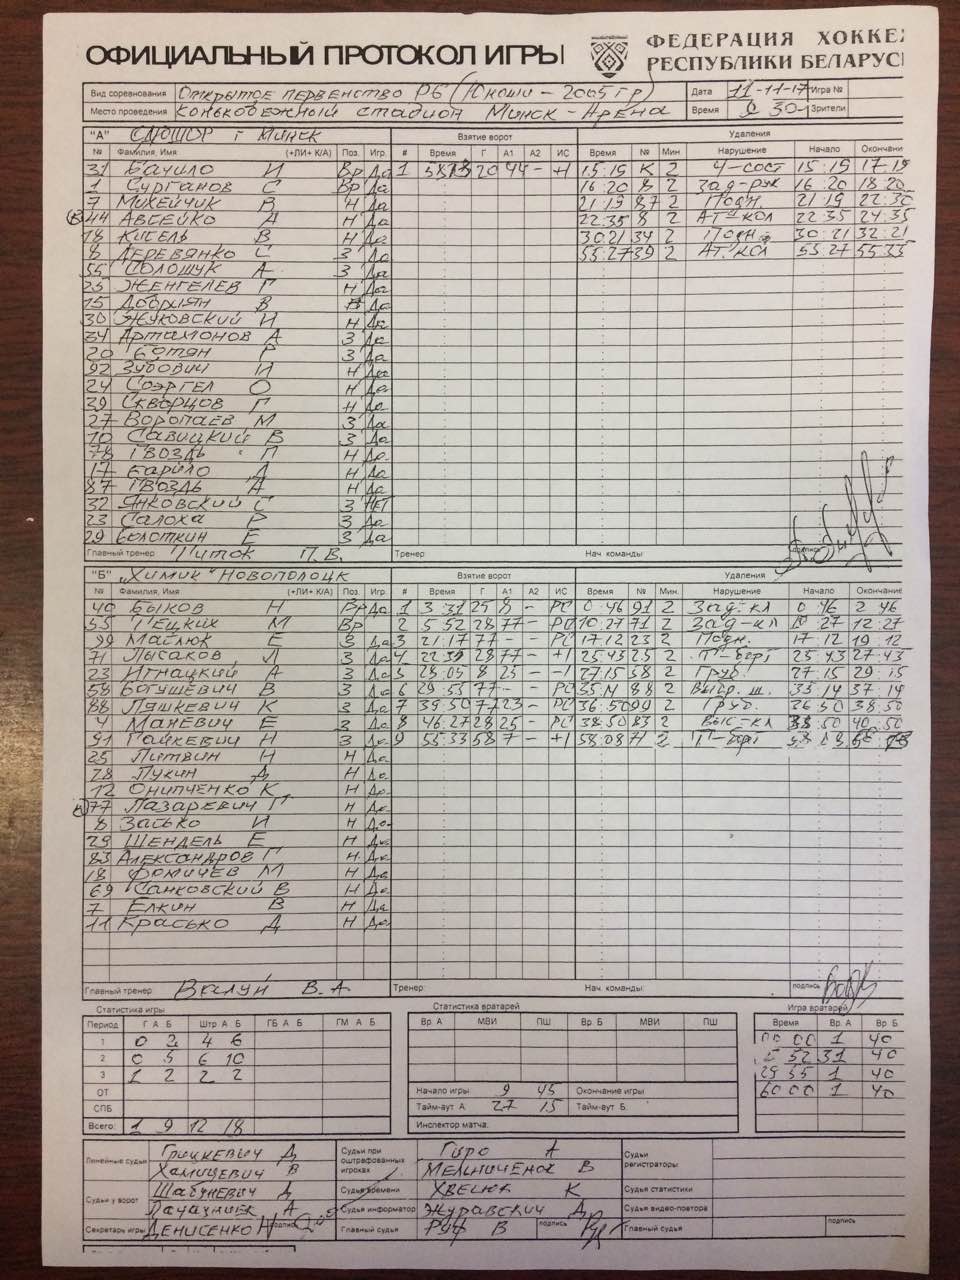 ОФИЦИАЛЬНЫЙ ПРОТОКОЛ ИГРЫ
ФЕДЕРАЦИЯ ХОККЕ
РЕСПУБЛИКИ БЕЛАРУС
Вид соревнования Открытое первенство РБ (Юноши - 2005 гр) Дата 11-11-17 Игра №
Место проведения Конькобежный стадион Минск-Арена Время 9 30 Зрители
"А" СДЮШОР г Минск Взятие ворот Удаления
№ Фамилия, Имя (+ЛИ+ К/А) Поз. Игр. # Время Г А1 А2 ИС Время № Мин. Нарушение Начало Окончани
31 Бачило И Вр Да 1 20 44 - +1 15 19 К 2 Ч-сост 15 19 17 19
1 Сурганов С Вр Да 16 20 8 2 Зад-рук 16 20 18 20
7 Михейчик В Н Да 21 19 87 2 Подн. 21 19 22 30
44 Авсейко А Н Да 22 35 8 2 22 35 24 35
18 Кисель В Н Да 30 21 34 2 Подн 30 21 32 21
8 Деревянко С З Да 55 27 39 2 55 27 55 33
55 Солощук А З Да
25 Женгелев Г Н Да
15 Добриян В Да
30 Жуковский И Н Да
34 Артамонов А З Да
20 Ботян Р З Да
92 Зубович И Н Да
24 Соэргел О Н Да
39 Скворцов Г Н Да
27 Воропаев М З Да
10 Савицкий В З Да
78 Гвоздь П Н Да
17 Барило Д Н Да
87 Гвоздь А Н Да
32 Янковский С З Нет
23 Салоха Р З Да
29 Болоткин Е З Да
Главный тренер Титок П.В. Тренер Нач. команды подпись
"Б" „Химик" Новополоцк Взятие ворот Удаления
№ Фамилия, Имя (+ЛИ+ К/А) Поз. Игр. # Время Г А1 А2 ИС Время № Мин. Нарушение Начало Окончани
40 Быков Н Вр Да 1 3 31 25 8 - РС 0 46 91 2 Зад-кл 0 46 2 46
55 Гецких М Вр 2 5 52 28 77 - РС 10 27 71 2 Зад-кл 10 27 12 27
99 Матюк Е З Да 3 21 17 77 - - РС 17 12 23 2 Подн. 17 12 19 12
71 Лысаков Л З Да 4 22 39 28 77 - +1 25 43 25 2 Т-борт 25 43 27 43
23 Игнацкий А З Да 5 28 05 8 25 - -1 27 15 58 2 Груб. 27 15 29 15
58 Богушевич В З Да 6 29 55 77 - - РС 35 14 88 2 Выбр. ш. 35 14 37 14
88 Ляшкевич К З Да 7 39 50 77 23 - РС 36 50 99 2 Груб. 36 50 38 50
4 Маневич Е З Да 8 46 27 28 25 - РС 38 50 83 2 Выс-кл 38 50 40 50
91 Гайкевич Н З Да 9 55 33 58 7 - +1 58 08 71 2 Т-борт
25 Литвин Н Н Да
28 Лукин Д Н Да
12 Онипченко К Н Да
77 Лазаревич П Н Да
8 Засько И Н Да
29 Шендель Е Н Да
83 Александров Г Н Да
18 Фомичев М Н Да
69 Санковский В Н Да
7 Ёлкин В Н Да
11 Красько Д Н Да
Главный тренер Валуй В.А. Тренер: Нач. команды: подпись
Статистика игры Статистика вратарей Игра вратарей
Период Г А Б Штр А Б ГБ А Б ГМ А Б Вр. А МВИ ПШ Вр. Б МВИ ПШ Время Вр. А Вр. Б
1 0 2 4 6 00 00 1 40
2 0 5 6 10 5 52 31 40
3 1 2 2 2 29 55 1 40
ОТ Начало игры 9 45 Окончание игры 60 00 1 40
СПБ Тайм-аут А 27 15 Тайм-аут Б
Всего: 1 9 12 18 Инспектор матча:
Линейные судьи Грицкевич Д Судьи при оштрафованных игроках Гиро А Судьи регистраторы
Хамицевич В Мельниченок В
Судьи у ворот Шабуневич Д Судья времени Хвесюк К Судья статистики
Лачазник А Судья информатор Журавский Д Судья видео-повтора
Секретарь игры Денисенко Н подпись Главный судья Руф В подпись Главный судья подпись